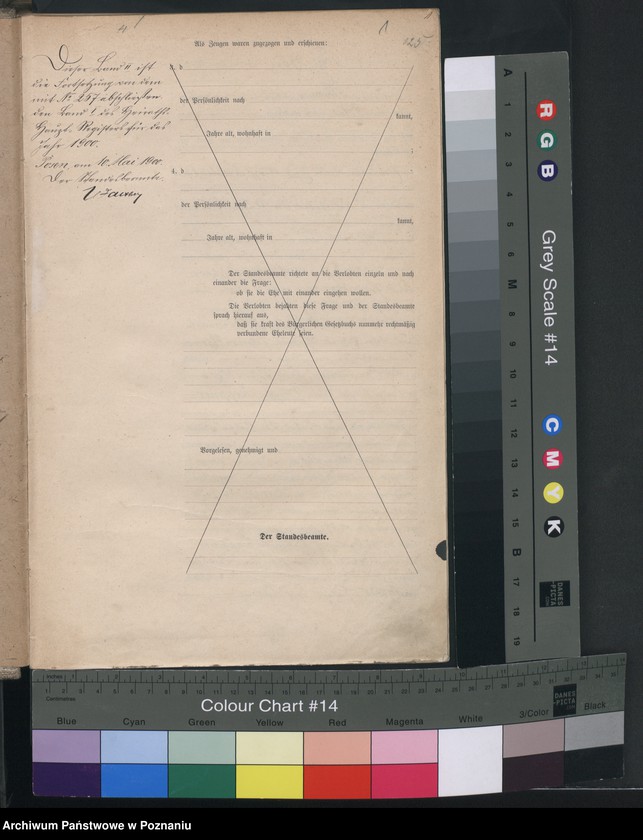 Als Zeugen waren zugezogen und erschienen:
Dieser Band II ist
die Fortsetzung von dem
mit Nr. 257 abschließenden
den Band I des Heiraths-
Haupt-Registers für das
Jahr 1900.
Posen, am 10. Mai 1900.
Der Standesbeamte.
3. d
der Persönlichkeit nach
kannt,
Jahre alt, wohnhaft in
;
4. d
der Persönlichkeit nach
kannt,
Jahre alt, wohnhaft in
Der Standesbeamte richtete an die Verlobten einzeln und nach
einander die Frage:
ob sie die Ehe mit einander eingehen wollen.
Die Verlobten bejahten diese Frage und der Standesbeamte
sprach hierauf aus,
daß sie kraft des Bürgerlichen Gesetzbuchs nunmehr rechtmäßig
verbundene Eheleute seien.
Vorgelesen, genehmigt und
Der Standesbeamte.
A 1 2 3 4 5 6 M 8 9 10 11 12 13 14 15 B 17 18 19
R G B
Grey Scale #14
C M Y K
DANES
PICTA
Colour Chart #14
Blue Cyan Green Yellow Red Magenta White 3/Color Black
Archiwum Państwowe w Poznaniu